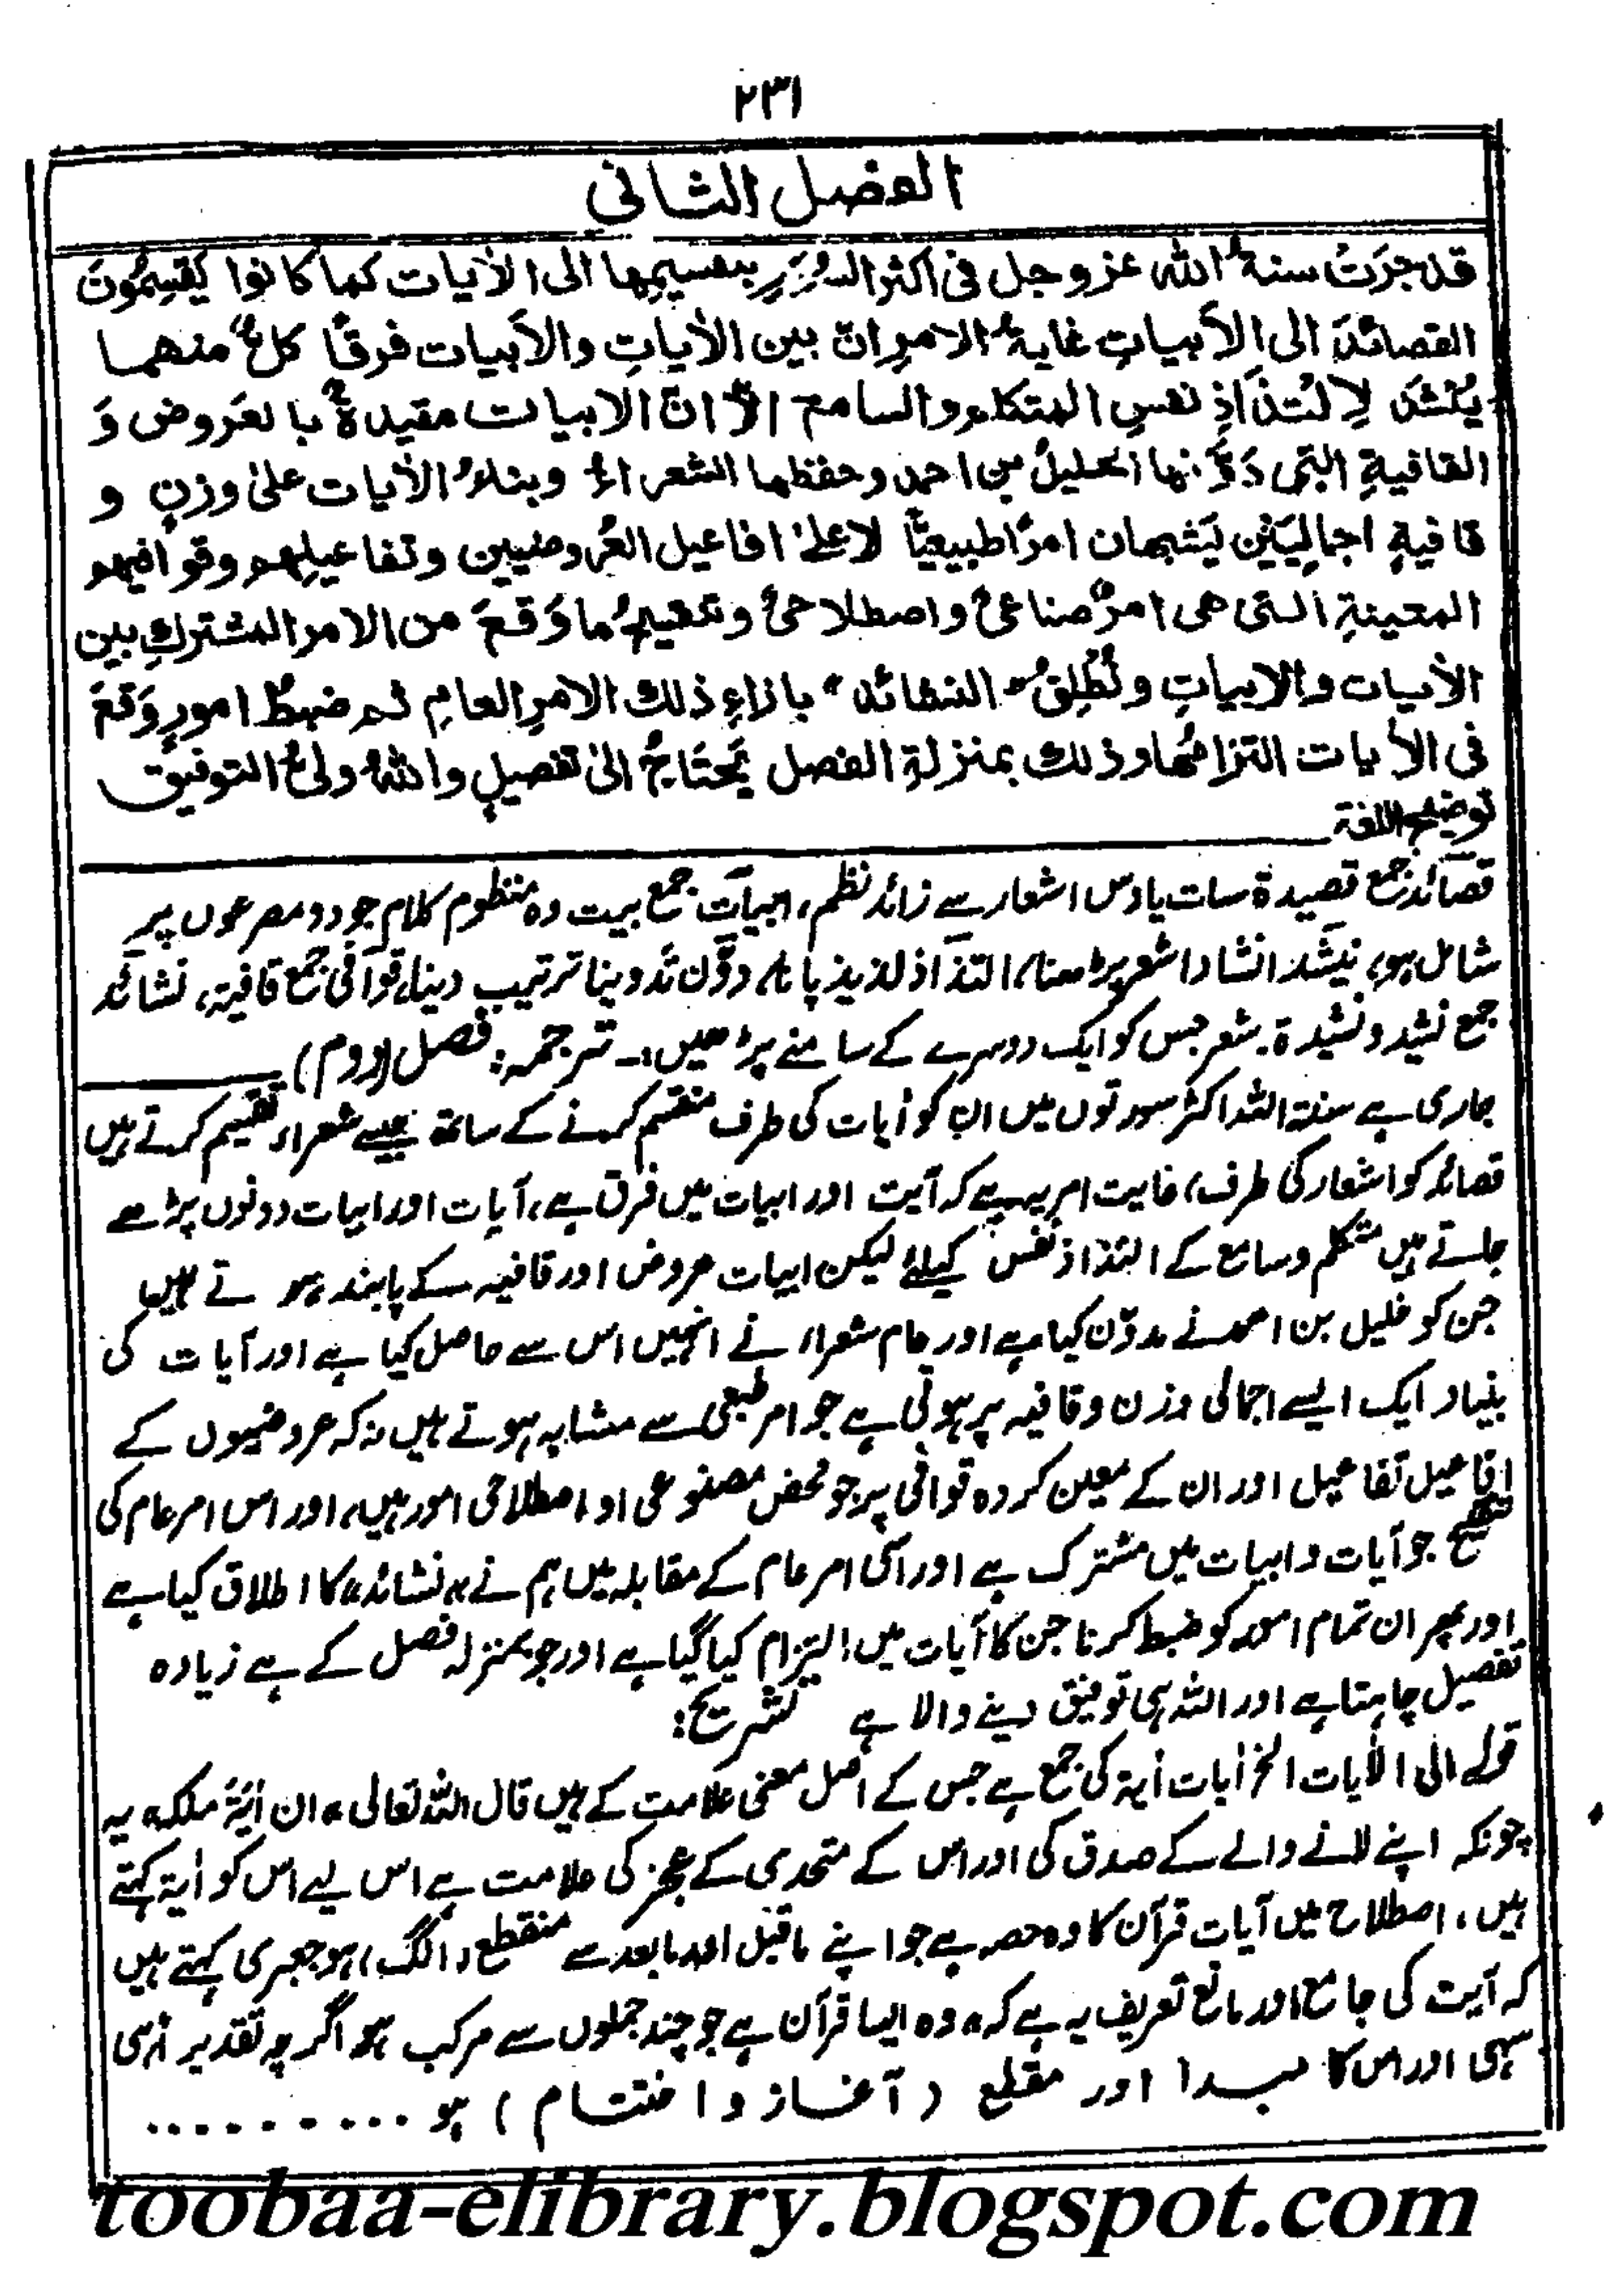 ۲۳۱
الفصل الثانی
قد جرَتْ سنةُ اللّٰه عز وجل فی اکثر السُوَرِ بتقسیمِها الی الاٰیات کما کانوا یُقَسِّمُونَ
القصائدَ الی الاَبیاتِ غایةُ الامرِ انّ بین الاٰیاتِ والاَبیات فرقًا کلٌّ منهما
یُنْشَدُ لِالْتذَاذِ نفسِ المتکلم والسامع الاّ انّ الابیات مقیدةٌ بالعَروض وَ
القافیةِ التی دَوَّنها الخلیلُ بن احمد وحفظها الشعراءُ وبناءُ الاٰیات علیٰ وزنٍ و
قافیةٍ اجمالِیَّیْنِ یَشبهان امرًا طبیعیًّا لا علیٰ افاعیل العَروضیین وتفاعیلِهم وقوافیهم
المعینةِ التی هی امرٌ صناعیٌ واصطلاحیٌ وتنقیحُ ما وَقَعَ من الامر المشترکِ بین
الاٰیات والابیاتِ ونُطْلِقُ "النشائد" بازاءِ ذلك الامرِ العامِ ثم ضبطُ امورٍ وَقَعَ
فی الاٰیات التزامُها وذلك بمنزلةِ الفصل یَحتَاجُ الیٰ تفصیلٍ واللّٰهُ ولیُّ التوفیق
توضیح اللغة
قصائد جمع قصیدة سات یا دس اشعار سے زائد نظم، ابیات جمع بیت وہ منظوم کلام جو دو مصرعوں پر
شامل ہو، ینشد انشادا شعر پڑھنا، التذاذ لذیذ پانا، دوّن تدوینا ترتیب دینا، قوافی جمع قافیة، نشائد
جمع نشید و نشیدة۔ شعر جس کو ایک دوسرے کے سامنے پڑھیں:۔ ترجمہ: فصل (دوم)
جاری ہے سنۃ اللہ اکثر سورتوں میں ان کو اٰیات کی طرف منقسم کرنے کے ساتھ جیسے شعراء تقسیم کرتے ہیں
قصائد کو اشعار کی طرف، غایت امر یہ ہے کہ آیت اور ابیات میں فرق ہے، آیات اور ابیات دونوں پڑھے
جاتے ہیں متکلم وسامع کے التذاذ نفس کیلئے لیکن ابیات عروض اور قافیہ کے پابند ہوتے ہیں
جن کو خلیل بن احمد نے مدوّن کیا ہے اور عام شعراء نے انہیں اس سے حاصل کیا ہے اور آیات کی
بنیاد ایک ایسے اجمالی وزن وقافیہ پر ہوتی ہے جو امر طبعی سے مشابہ ہوتے ہیں نہ کہ عروضیوں کے
افاعیل تفاعیل اور ان کے معین کردہ قوافی پر جو محض مصنوعی او اصطلاحی امور ہیں، اور اس امر عام کی
تنقیح جو آیات وابیات میں مشترک ہے اور اسی امر عام کے مقابلہ میں ہم نے "نشائد" کا اطلاق کیا ہے
اور پھر ان تمام امور کو ضبط کرنا جن کا آیات میں التزام کیا گیا ہے اور جو بمنزلہ فصل کے ہے زیادہ
تفصیل چاہتا ہے اور اللہ ہی توفیق دینے والا ہے تشریح:
قولہ الی الاٰیات الخ اٰیات اٰیۃ کی جمع ہے جس کے اصل معنی علامت کے ہیں قال اللہ تعالی "ان اٰیَۃَ ملکہ" یہ
چونکہ اپنے لانے والے کے صدق کی اور اس کے متحدی کے عجز کی علامت ہے اس لیے اس کو اٰیۃ کہتے
ہیں، اصطلاح میں آیات قرآن کا وہ حصہ ہے جو اپنے ماقبل اور مابعد سے منقطع (الگ) ہو جعبری کہتے ہیں
کہ آیت کی جامع اور مانع تعریف یہ ہے کہ "وہ ایسا قرآن ہے جو چند جملوں سے مرکب ہو اگرچہ تقدیر اہی
سہی اور اس کا مبدا اور مقطع (آغاز و اختتام) ہو ..........
toobaa-elibrary.blogspot.com